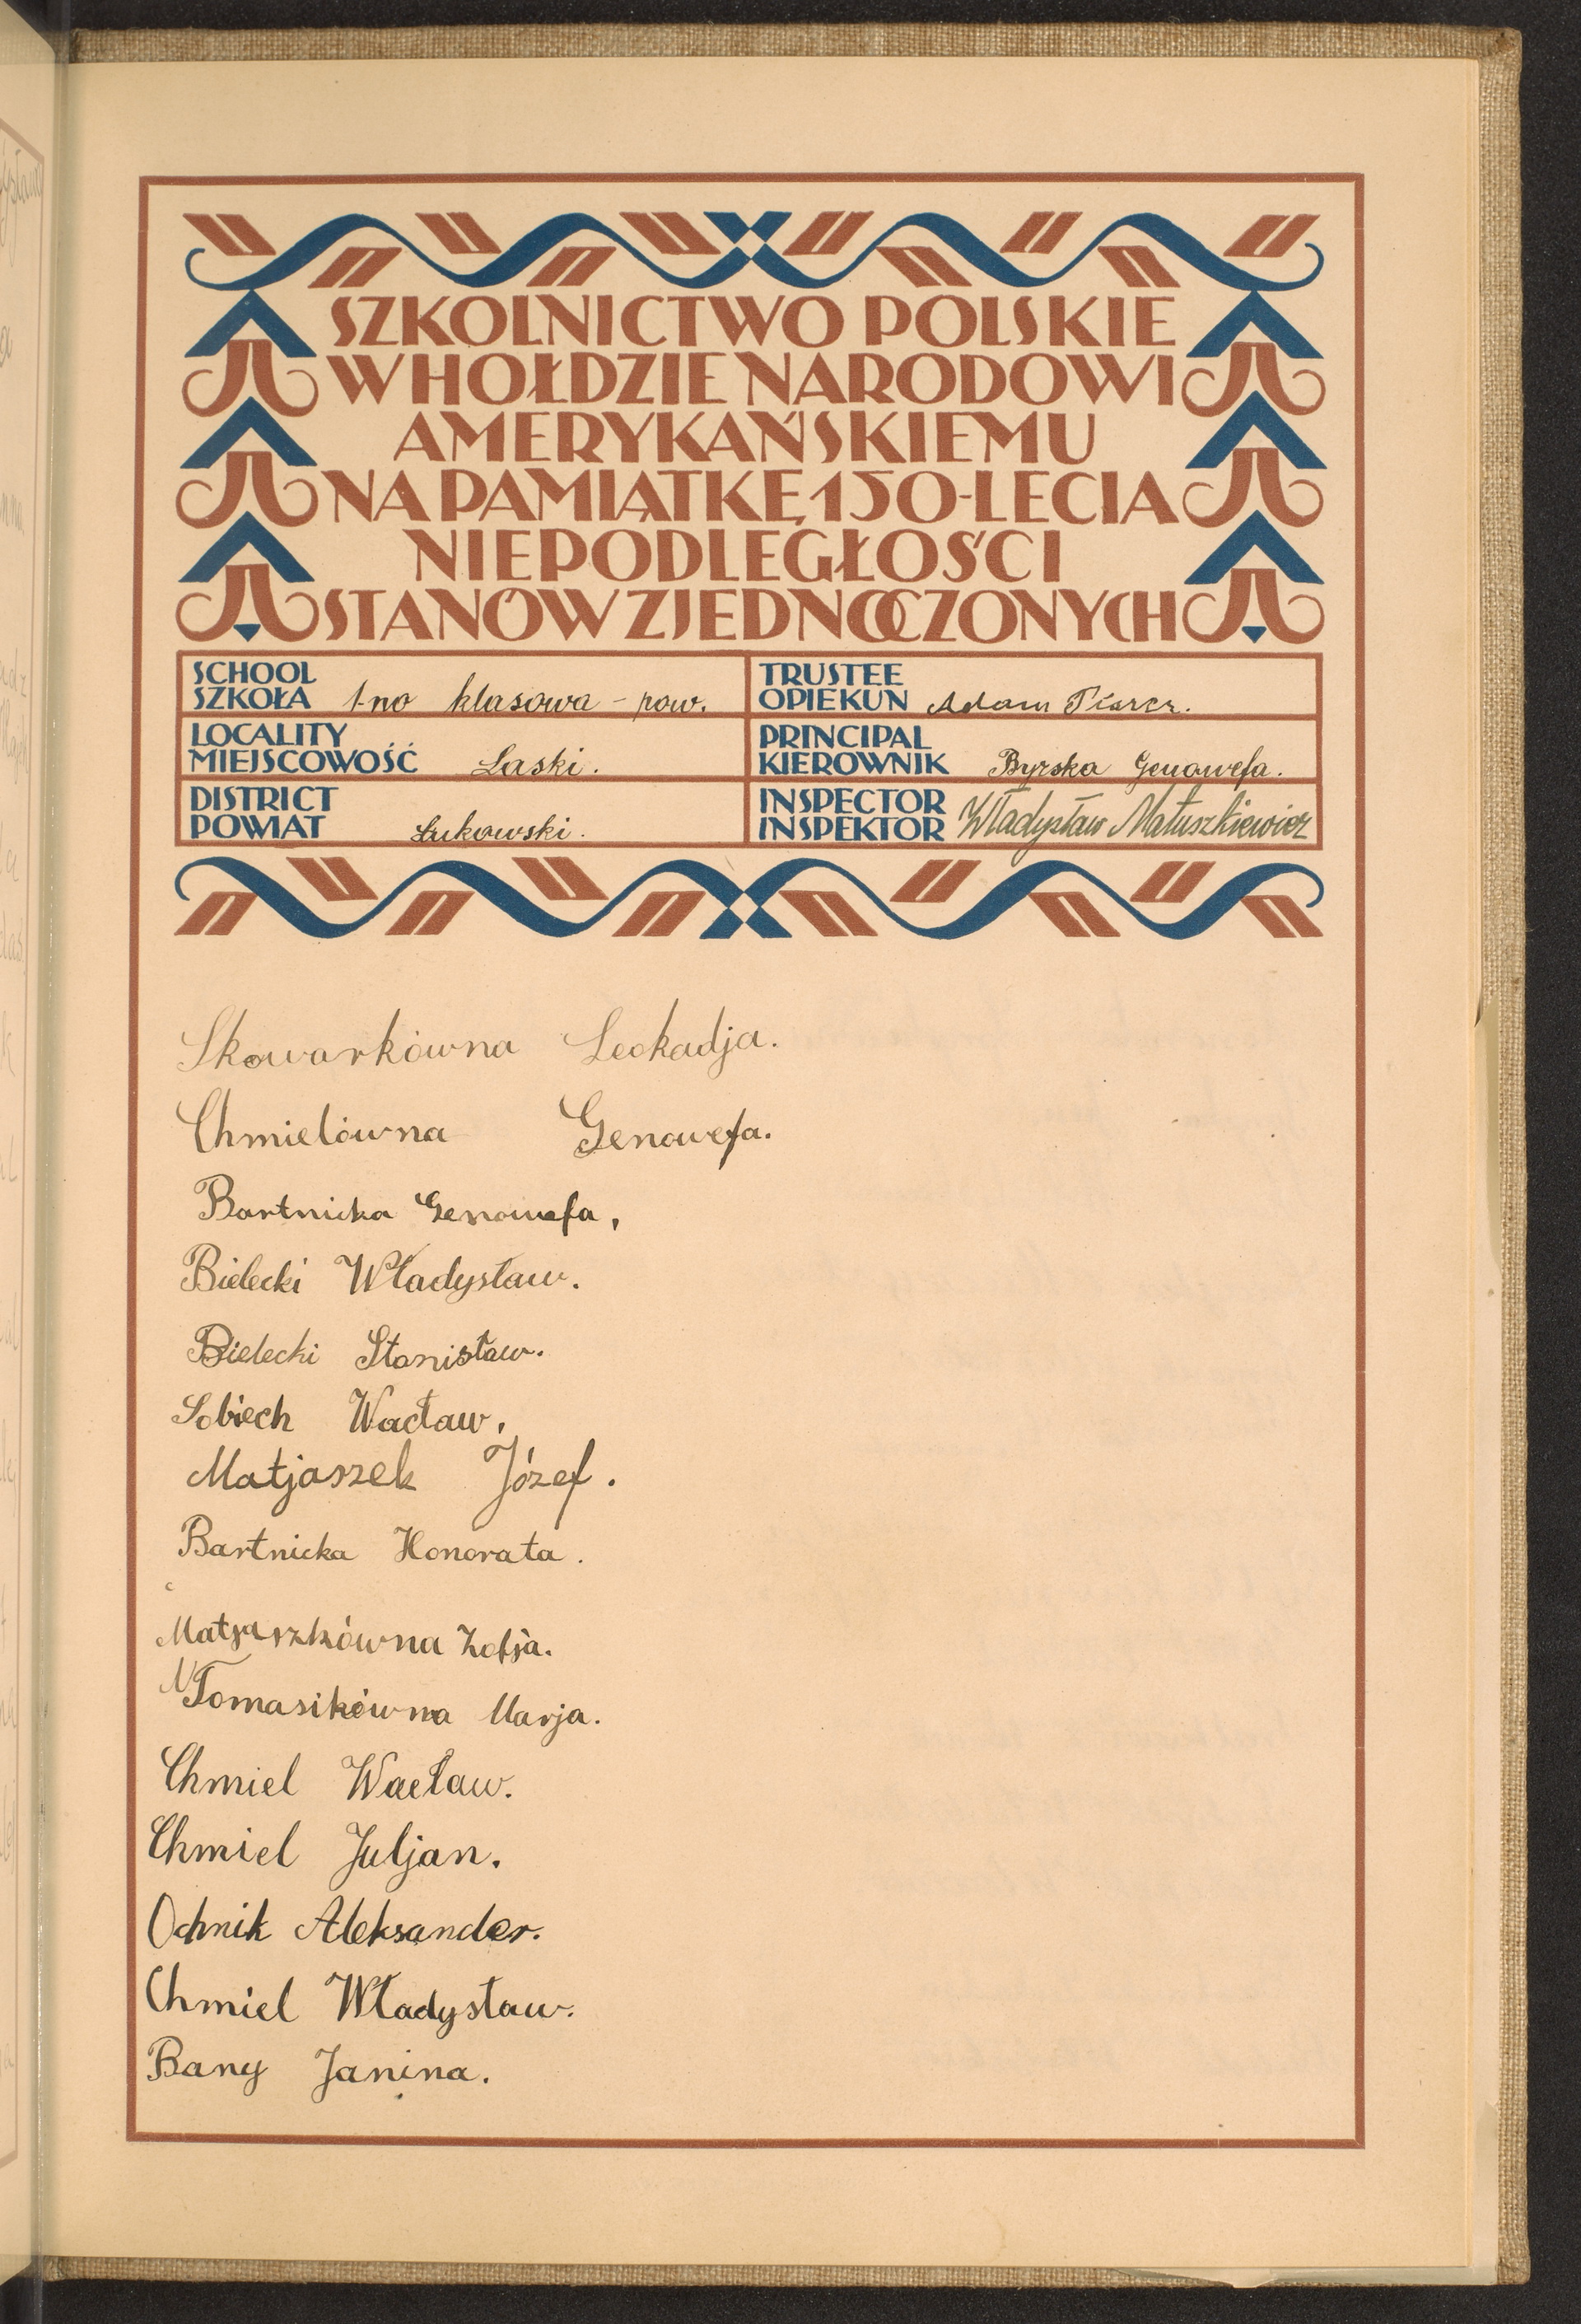 SZKOLNICTWO POLSKIE
W HOŁDZIE NARODOWI
AMERYKAŃSKIEMU
NA PAMIĄTKĘ 150-LECIA
NIEPODLEGŁOŚCI
STANÓW ZJEDNOCZONYCH
SCHOOL
SZKOŁA 1-no klasowa - pow.
TRUSTEE
OPIEKUN Adam
LOCALITY
MIEJSCOWOŚĆ Laski.
PRINCIPAL
KIEROWNIK Byrska Genowefa.
DISTRICT
POWIAT Łukowski.
INSPECTOR
INSPEKTOR Władysław Matuszkiewicz
Skowarkówna Leokadja.
Chmielówna Genowefa.
Bartnicka Genowefa,
Bielecki Władysław.
Bielecki Stanisław.
Sobiech Wacław,
Matjaszek Józef.
Bartnicka Honorata.
Matjaszkówna Zofja.
Tomasikówna Marja.
Chmiel Wacław.
Chmiel Juljan.
Ochnik Aleksander.
Chmiel Władysław.
Bany Janina.